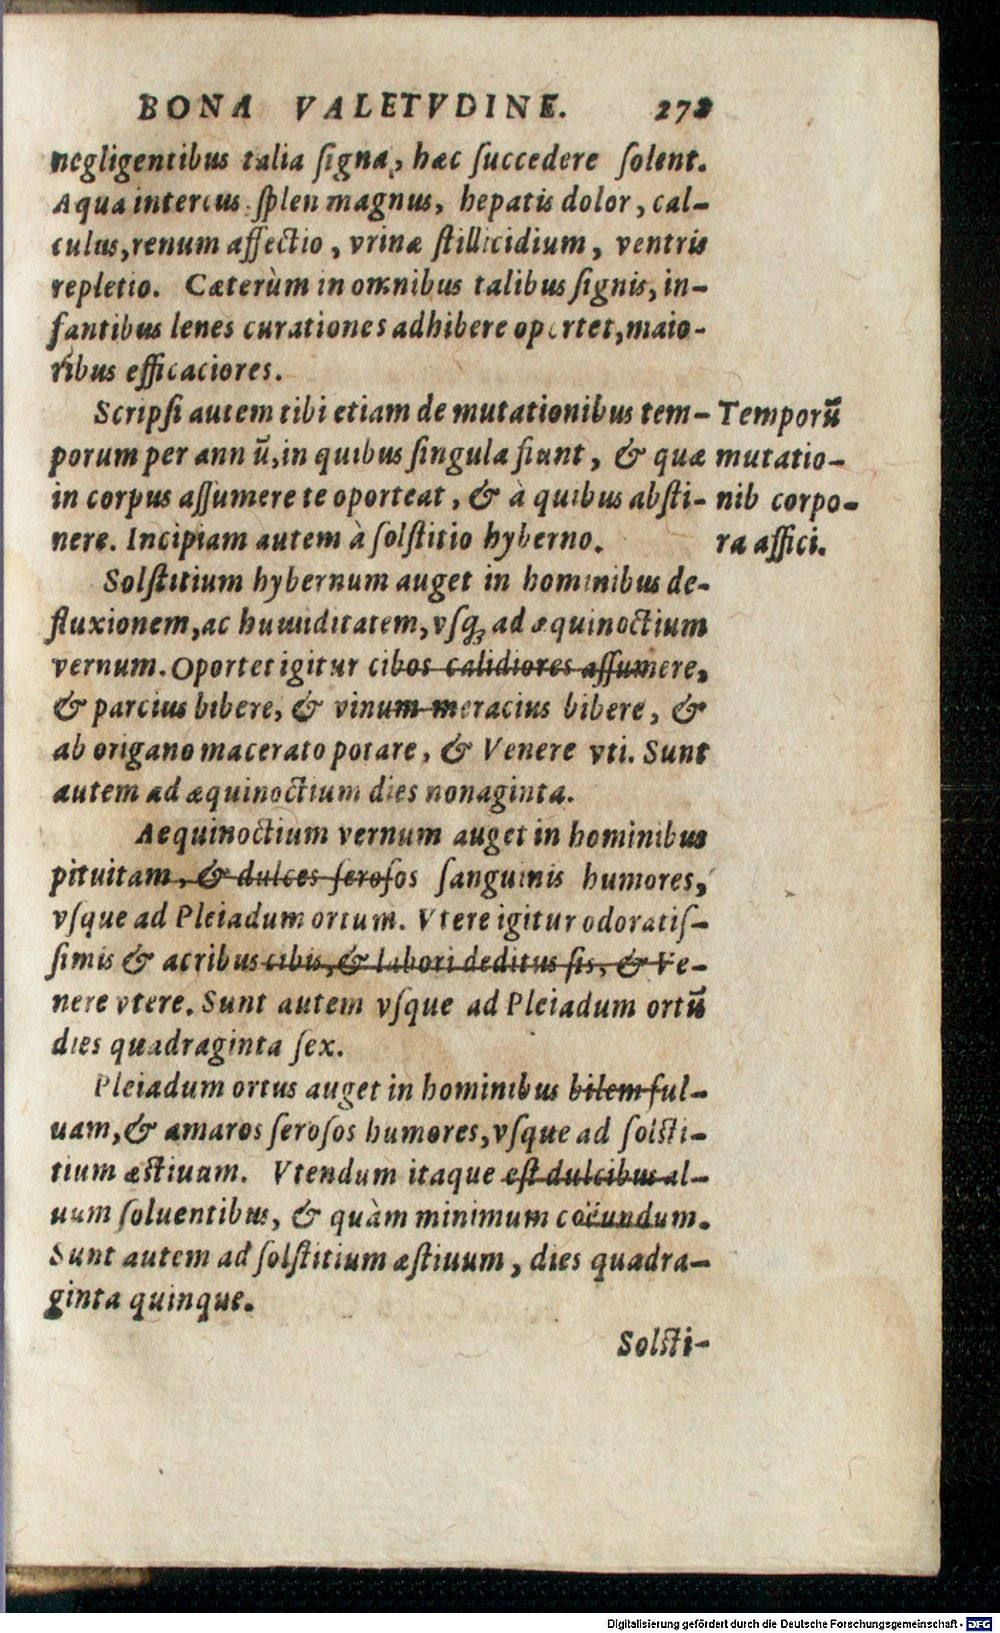 BONA VALETVDINE. 272
negligentibus talia signa, hæc succedere solent.
Aqua intercus splen magnus, hepatis dolor, cal-
culus, renum affectio, vrinæ stillicidium, ventris
repletio. Cæterùm in omnibus talibus signis, in-
fantibus lenes curationes adhibere oportet, maio-
ribus efficaciores.
Scripsi autem tibi etiam de mutationibus tem-
porum per annū, in quibus singula fiunt, & quæ
in corpus assumere te oporteat, & à quibus absti-
nere. Incipiam autem à solstitio hyberno.
Temporū
mutatio-
nib corpo-
ra affici.
Solstitium hybernum auget in hominibus de-
fluxionem, ac humiditatem, vsq; ad æquinoctium
vernum. Oportet igitur cibos calidiores assumere,
& parcius bibere, & vinum meracius bibere, &
ab origano macerato potare, & Venere vti. Sunt
autem ad æquinoctium dies nonaginta.
Aequinoctium vernum auget in hominibus
pituitam, & dulces serosos sanguinis humores,
vsque ad Pleiadum ortum. Vtere igitur odoratis-
simis & acribus cibis, & labori deditus sis, & Ve-
nere vtere. Sunt autem vsque ad Pleiadum ortū
dies quadraginta sex.
Pleiadum ortus auget in hominibus bilem ful-
uam, & amaros serosos humores, vsque ad solsti-
tium æstiuam. Vtendum itaque est dulcibus al-
uum soluentibus, & quàm minimum coëundum.
Sunt autem ad solstitium æstiuum, dies quadra-
ginta quinque.
Solsti-
Digitalisierung gefördert durch die Deutsche Forschungsgemeinschaft - DFG